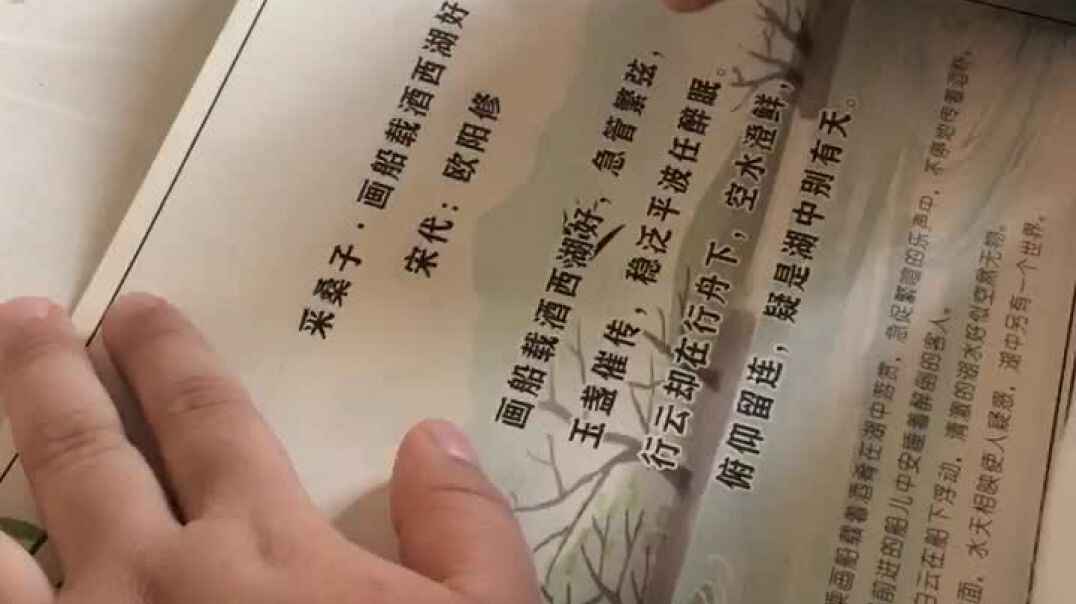 采桑子·画船载酒西湖好
宋代：欧阳修
画船载酒西湖好，急管繁弦，
玉盏催传，稳泛平波任醉眠。
行云却在行舟下，空水澄鲜，
俯仰留连，疑是湖中别有天。
画船载着酒肴在湖中游赏，急促繁喧的乐声中，不停地传着酒杯。
前进的船儿中安睡着醉倒的客人。
白云在船下浮动，清澈的湖水好似空然无物。
面，水天相映使人疑惑，湖中另有一个世界。